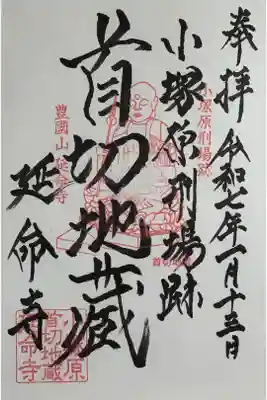 奉拝 令和七年一月十三日
小塚原刑場跡
首切地蔵
延命寺
小塚原刑場跡
豊國山 延命寺
首切地蔵
小塚原
首切地蔵
延命寺